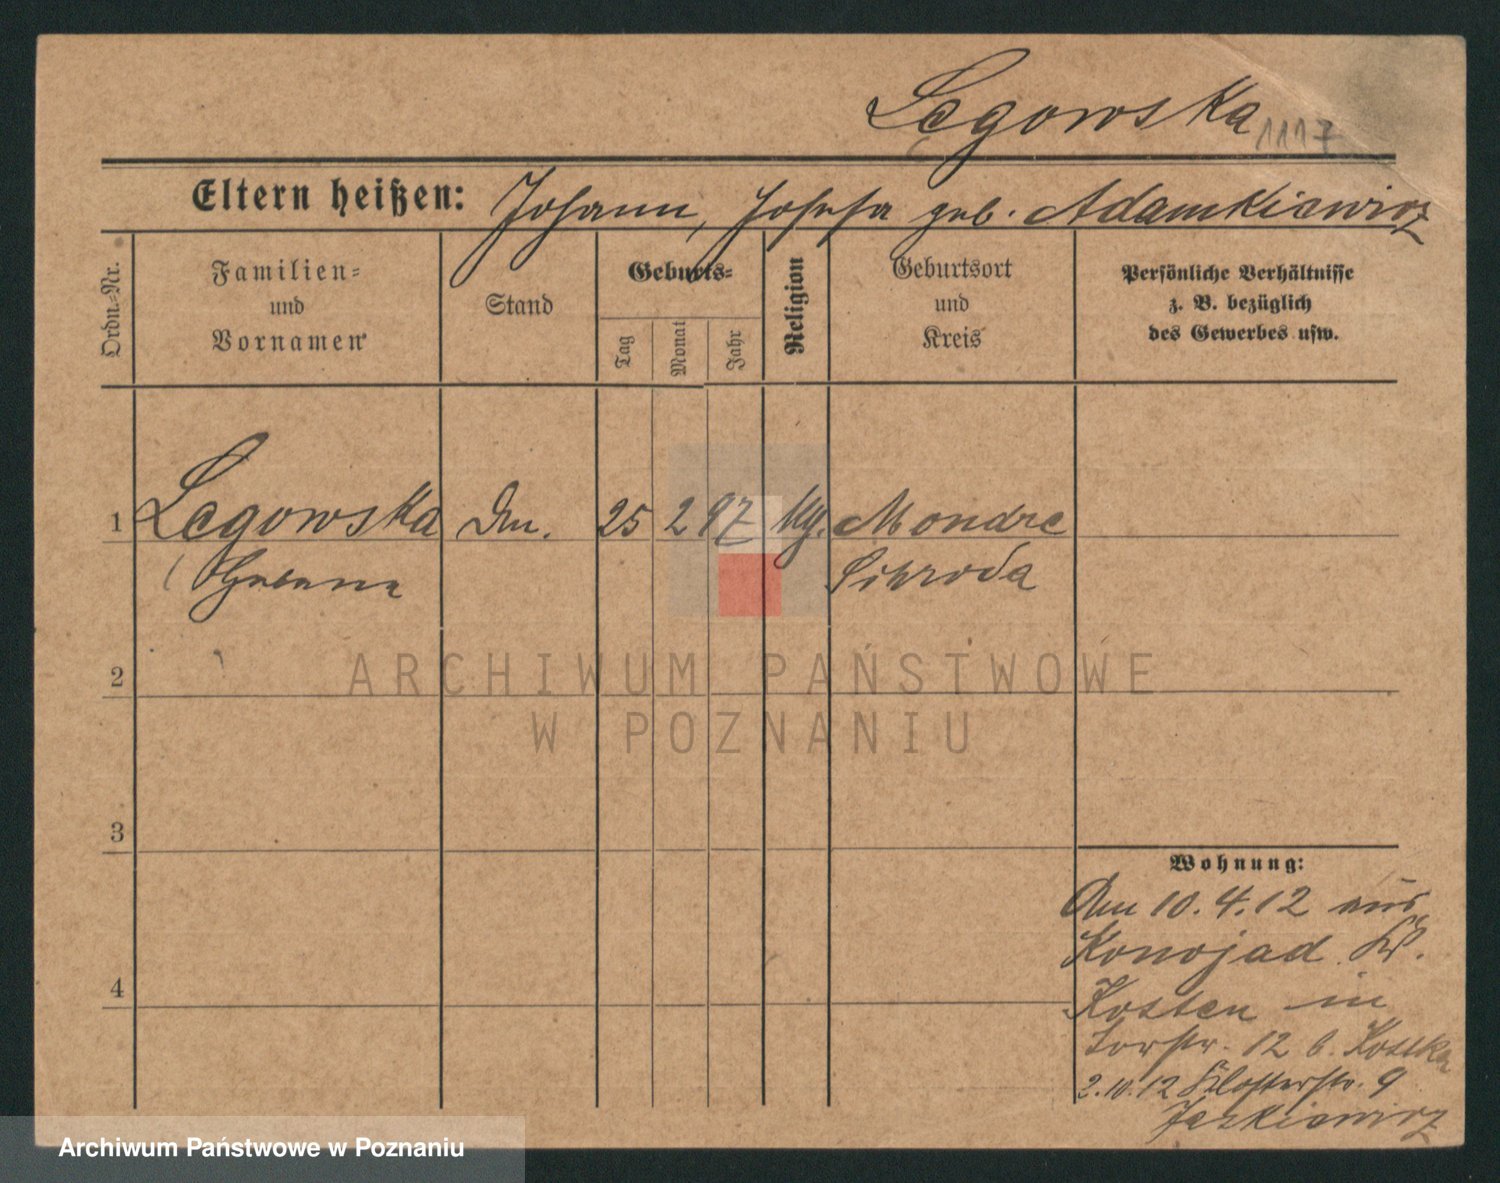 Legowska 1117
Eltern heißen: Johann, Josefa geb. Adamkiewicz
Ordn.-Nr.
Familien-
und
Vornamen
Stand
Geburts-
Tag
Monat
Jahr
Religion
Geburtsort
und
Kreis
Persönliche Verhältnisse
z. B. bezüglich
des Gewerbes usw.
1 Legowska 25 2 97 Mondre
Schroda
2
ARCHIWUM PAŃSTWOWE
W POZNANIU
3
Wohnung:
Am 10.4.12 aus
Konojad Kr.
4
Kosten in
Torstr. 12 b. Kostka
2.10.12 Klosterstr. 9
Jaskiewicz
Archiwum Państwowe w Poznaniu